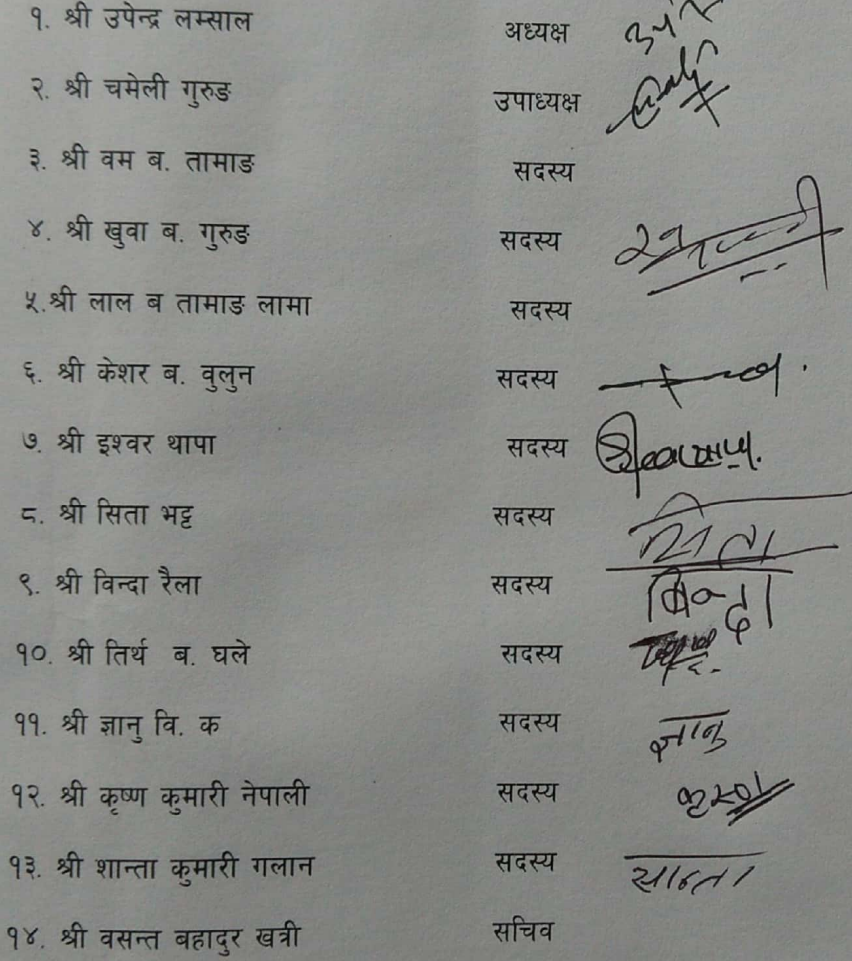 १. श्री उपेन्द्र लम्साल अध्यक्ष
२. श्री चमेली गुरुङ उपाध्यक्ष
३. श्री वम ब. तामाङ सदस्य
४. श्री खुवा ब. गुरुङ सदस्य
५.श्री लाल ब तामाङ लामा सदस्य
६. श्री केशर ब. वुलुन सदस्य
७. श्री इश्वर थापा सदस्य
८. श्री सिता भट्ट सदस्य सिता
९. श्री विन्दा रैला सदस्य बिन्दा
१०. श्री तिर्थ ब. घले सदस्य
११. श्री ज्ञानु वि. क सदस्य ज्ञानु
१२. श्री कृष्ण कुमारी नेपाली सदस्य
१३. श्री शान्ता कुमारी गलान सदस्य सान्ता
१४. श्री वसन्त बहादुर खत्री सचिव